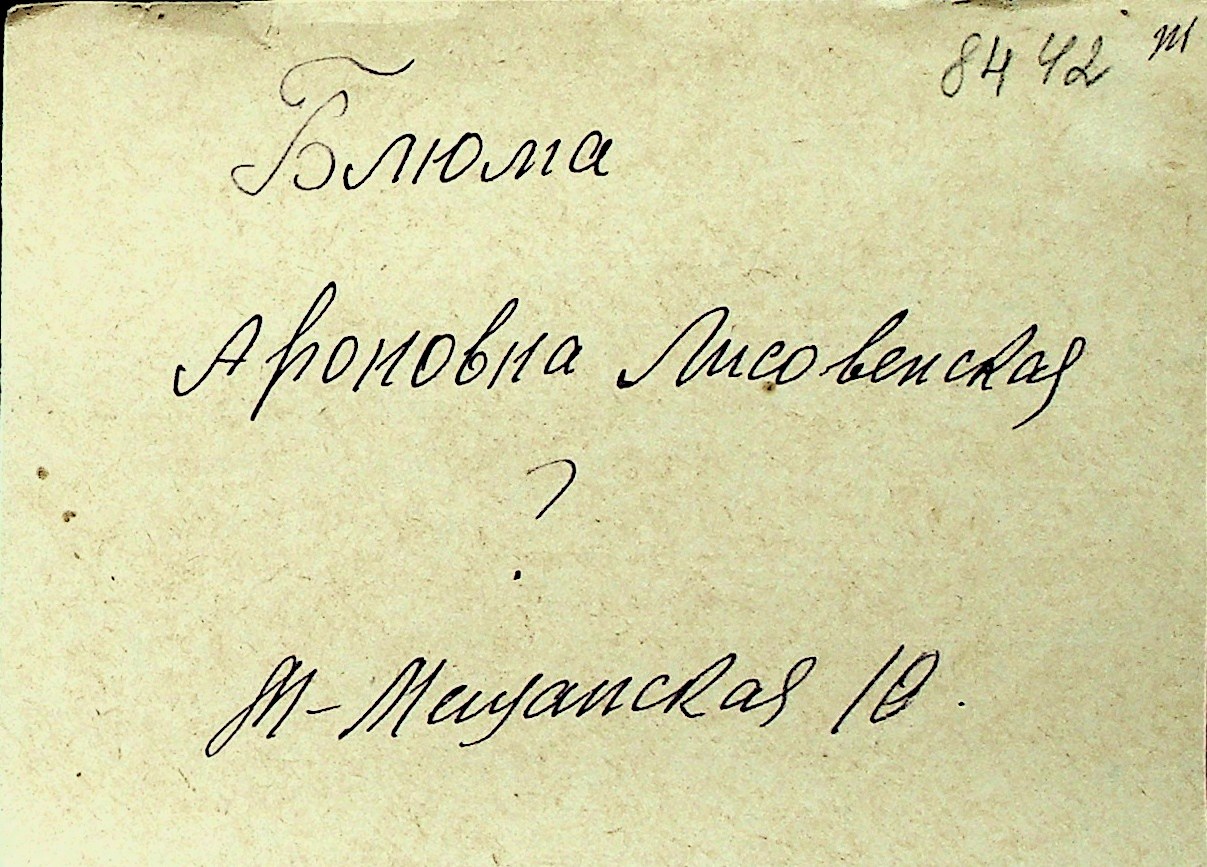 8442 т
Блюма
Ароновна Лисовенская
?
М-Мещанская 10.